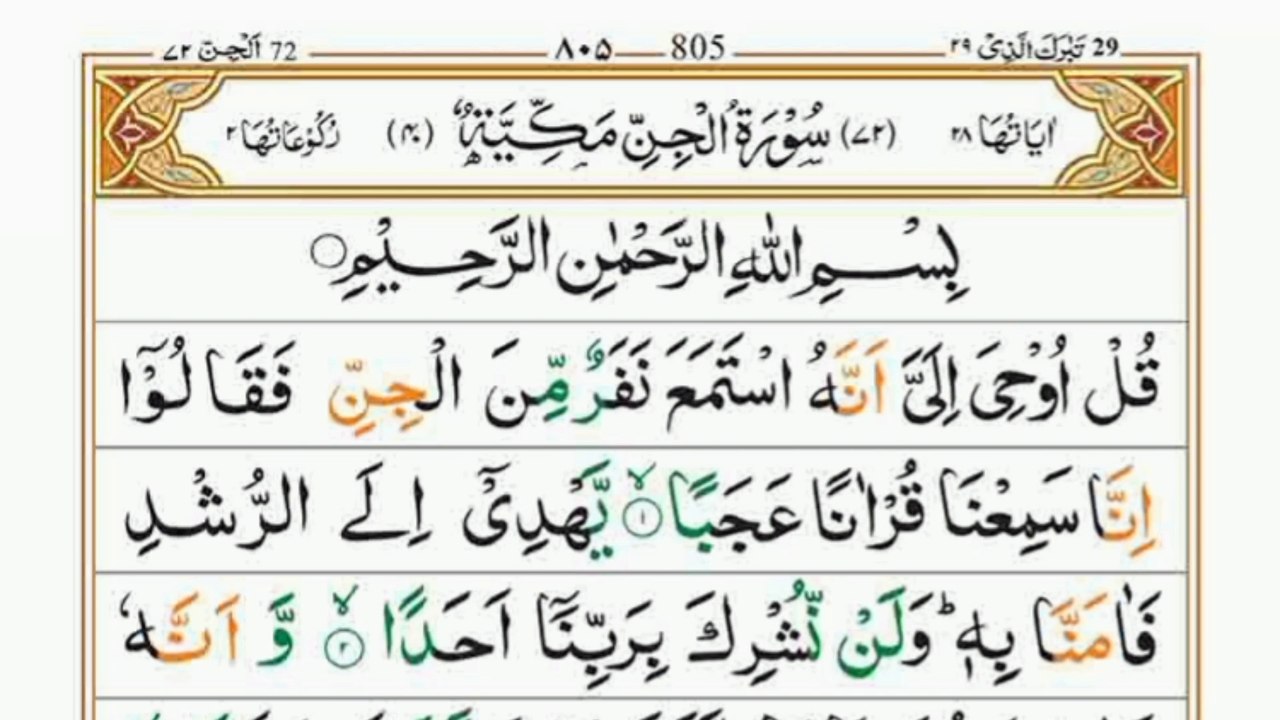 29 تَبٰرَكَ الَّذِیْ ۲۹
805 ۸۰۵
72 اَلْجِنّ ۷۲
اٰیَاتُهَا ۲۸
(۷۲) سُوْرَةُ الْجِنِّ مَكِّیَّةٌ (۴۰)
رُكُوْعَاتُهَا ۲
بِسْمِ اللّٰهِ الرَّحْمٰنِ الرَّحِیْمِ
قُلْ اُوْحِیَ اِلَیَّ اَنَّهُ اسْتَمَعَ نَفَرٌ مِّنَ الْجِنِّ فَقَالُوْۤا
اِنَّا سَمِعْنَا قُرْاٰنًا عَجَبًا ۙ۱ یَّهْدِیْۤ اِلَی الرُّشْدِ
فَاٰمَنَّا بِهٖ ؕ وَلَنْ نُّشْرِكَ بِرَبِّنَاۤ اَحَدًا ۙ۲ وَّ اَنَّهٗ